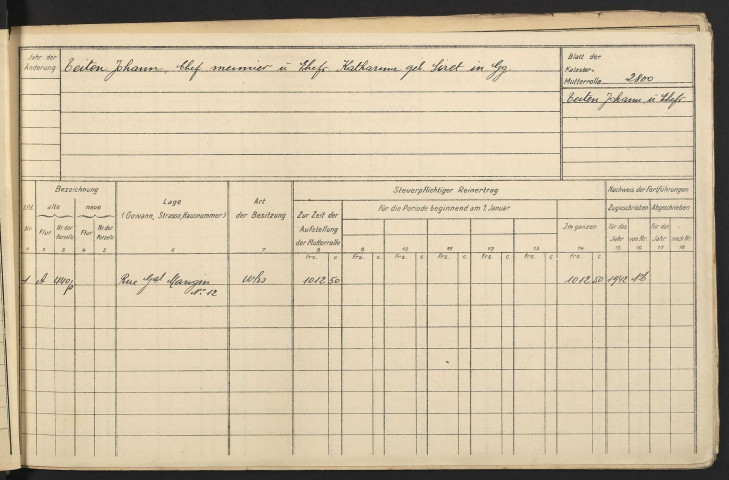 Jahr der
Änderung
Teiten Johann, Chef meunier u Ehefr. Katharina geb. Soret in Gg
Blatt der
Kataster-
Mutterrolle 2800
Teiten Johann u Ehefr
Bezeichnung
alte
neue
Lage
(Gewann, Strasse, Hausnummer)
Art
der Besitzung
Steuerpflichtiger Reinertrag
Nachweis der Fortführungen
Lfd.
Nr.
Flur
Nr. der
Parzelle
Flur
Nr. der
Parzelle
Zur Zeit der
Aufstellung
der Mutterrolle
Für die Periode beginnend am 1. Januar
Im ganzen
Zugeschrieben
Abgeschrieben
für das
Jahr
von Nr.
für das
Jahr
nach Nr.
1 2 3 4 5 6 7 8 9 10 11 12 13 14 15 16 17 18
frs. c. frs. c. frs. c. frs. c. frs. c. frs. c. frs. c.
1 A Rue Gal Mangin Whs 1012 50 1012 50 1942
No 12